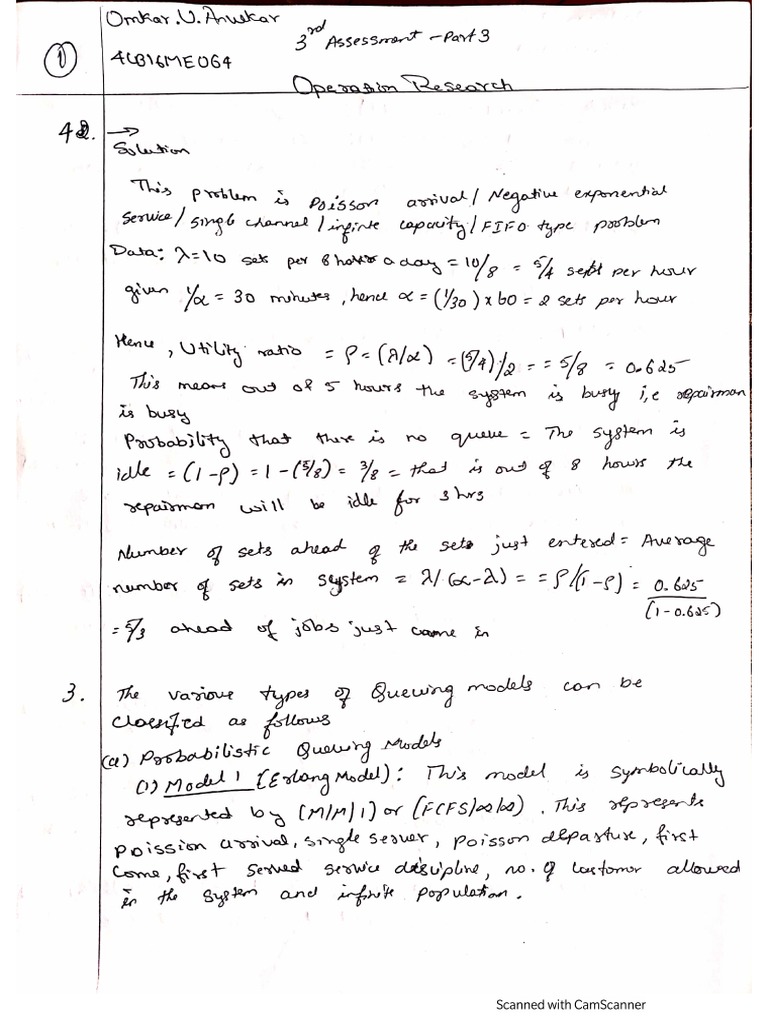 Omkar.U.Anvekar
3rd Assessment - Part 3
①
4CB16ME064
Operation Research
42. →
Solution
This problem is Poisson arrival / Negative exponential
service / single channel / infinite capacity / FIFO type problem
Data: λ=10 sets per 8 hours a day = 10/8 = 5/4 sets per hour
given 1/α = 30 minutes, hence α = (1/30) x 60 = 2 sets per hour
Hence, Utility ratio = ρ = (λ/α) = (5/4)/2 = = 5/8 = 0.625
This means out of 5 hours the system is busy i,e repairman
is busy
Probability that there is no queue = The system is
idle = (1-ρ) = 1 - (5/8) = 3/8 = that is out of 8 hours the
repairman will be idle for 3 hrs
Number of sets ahead of the sets just entered = Average
number of sets in system = λ/(α-λ) = = ρ/(1-ρ) = 0.625/(1-0.625)
= 5/3 ahead of jobs just came in
3. The various types of Queuing models can be
classified as follows
(a) Probabilistic Queuing Models
(1) Model 1 (Erlang Model): This model is symbolically
represented by (M/M/1) or (FCFS/∞/∞). This represents
poission arrival, single server, poisson departure, first
come, first served service discipline, no. of customer allowed
in the system and infinite population.
Scanned with CamScanner